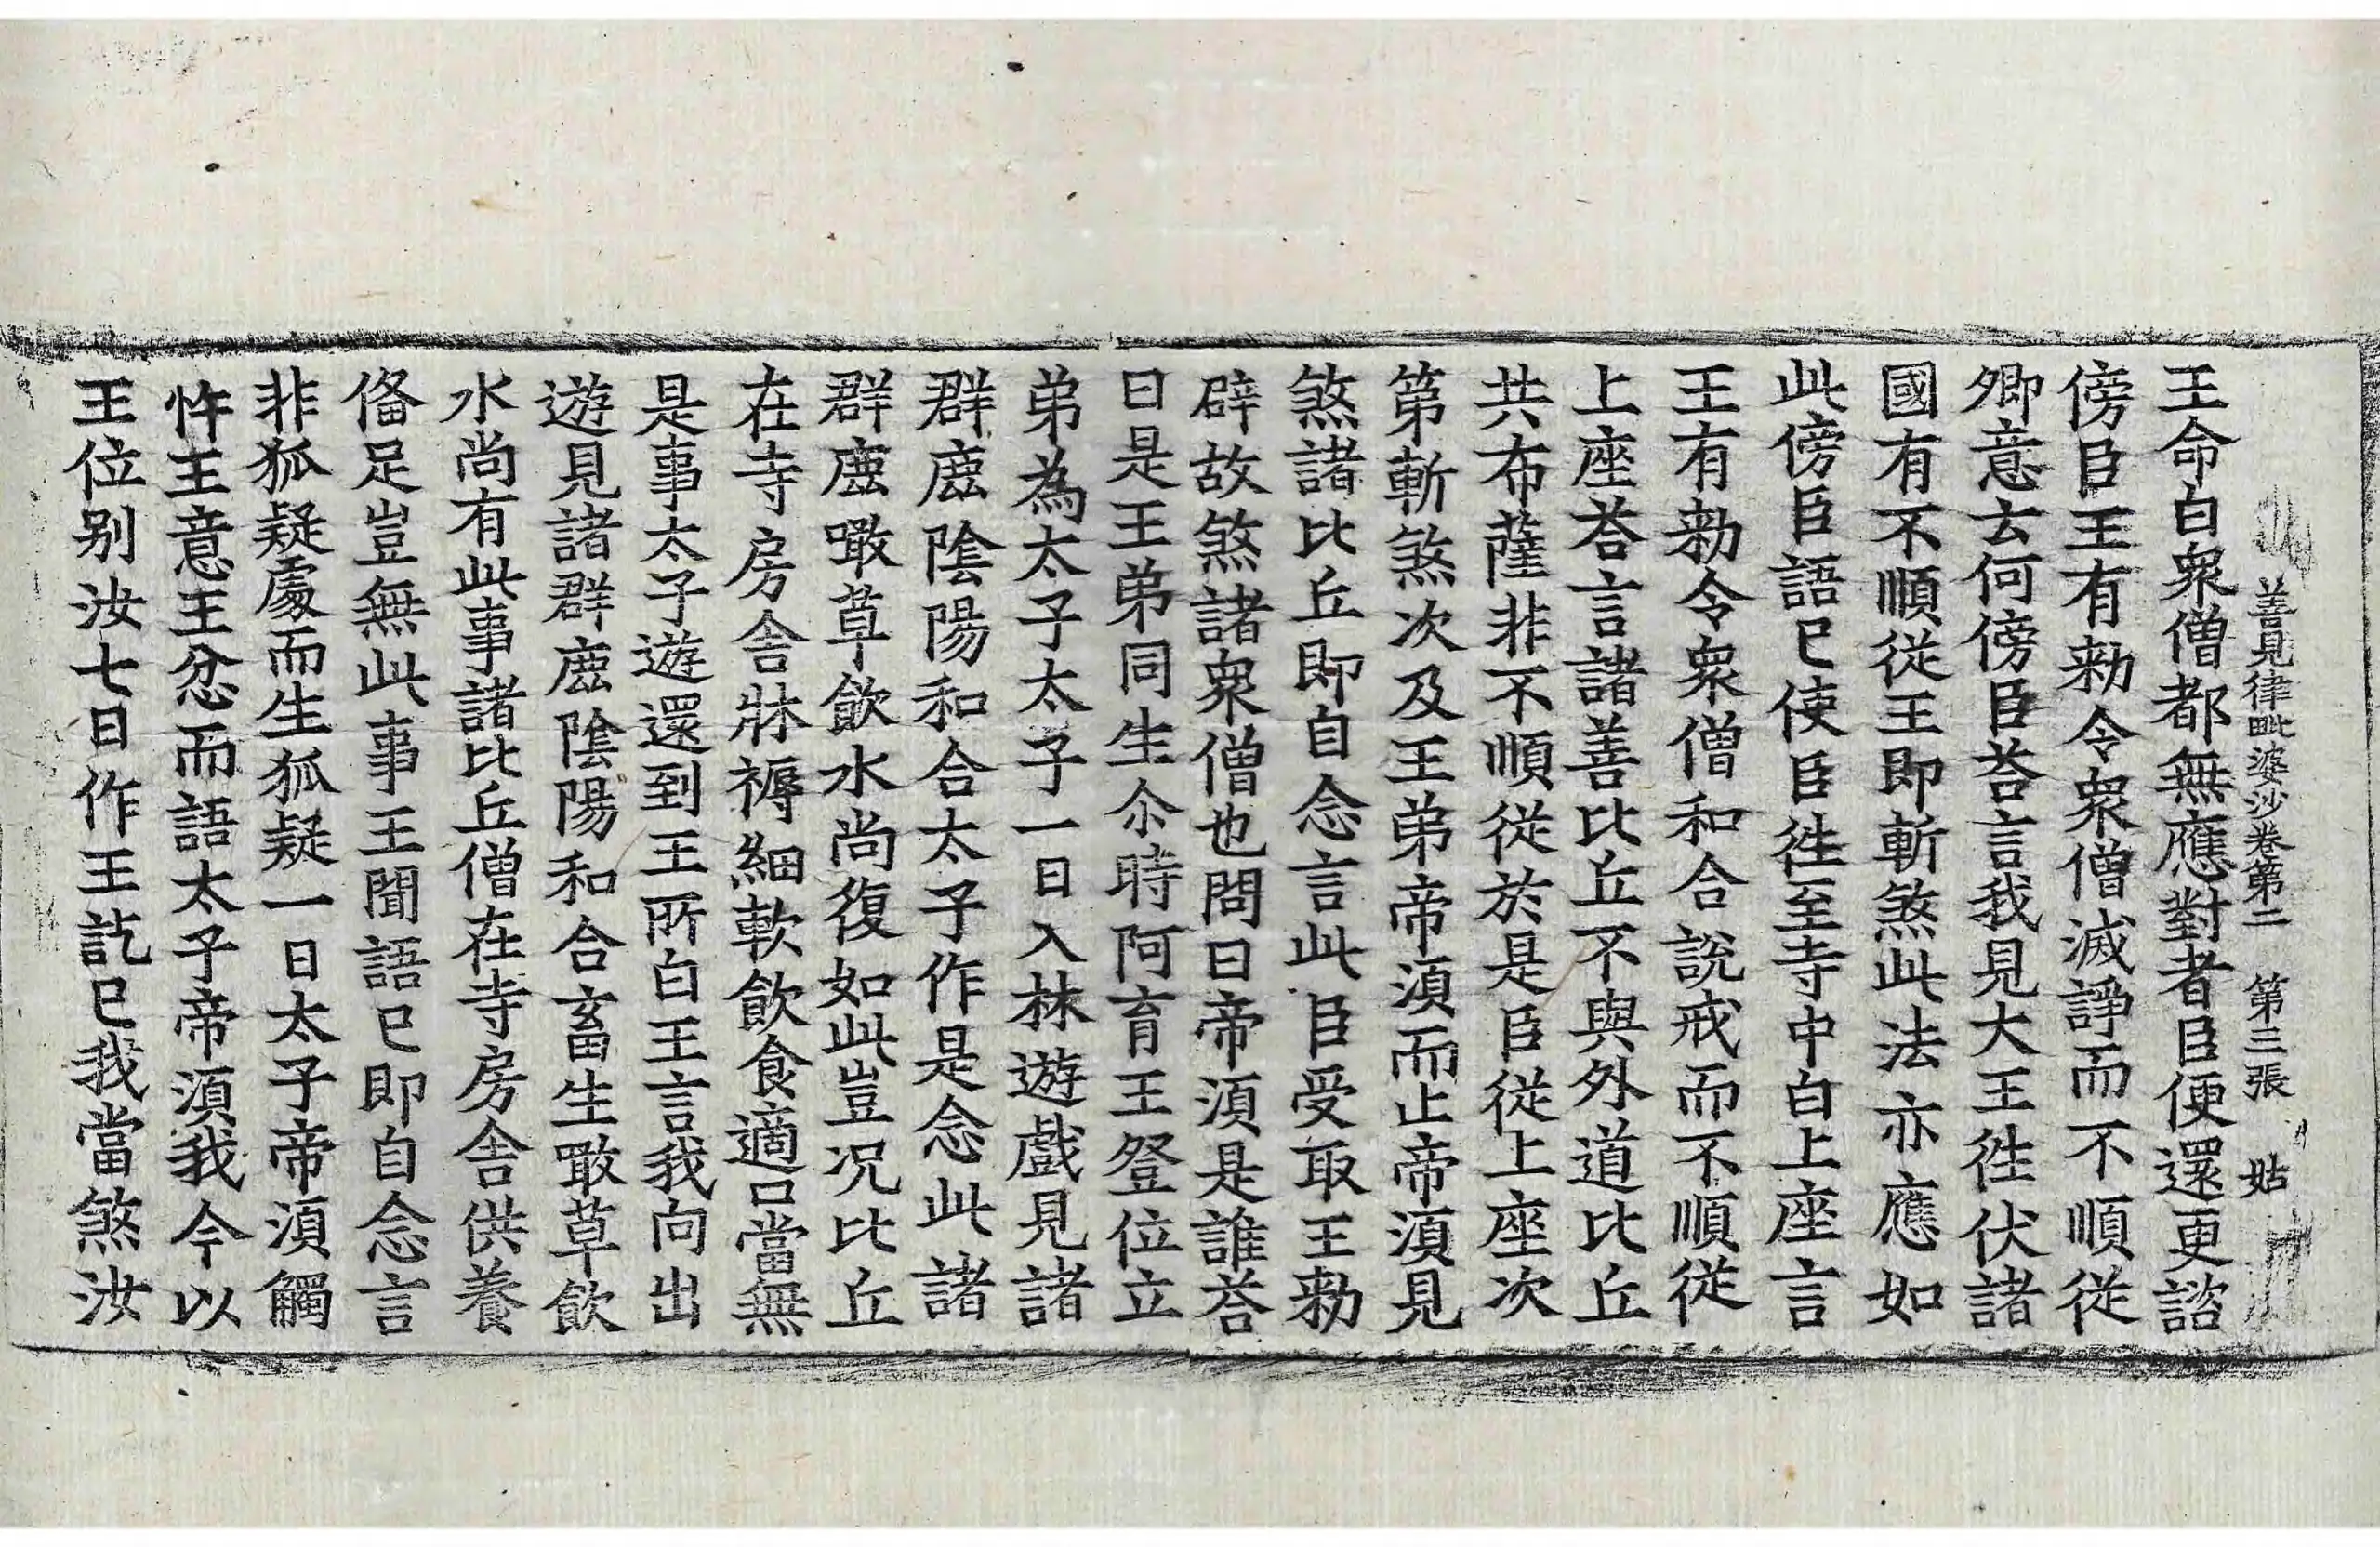 善見律毗婆沙卷第二 第三張 姑
王命白衆僧都無應對者臣便還更諮
傍臣王有勑令衆僧滅諍而不順從
卿意云何傍臣荅言我見大王徃伏諸
國有不順從王即斬煞此法亦應如
此傍臣語已使臣徃至寺中白上座言
王有勑令衆僧和合說戒而不順從
上座荅言諸善比丘不與外道比丘
共布薩非不順從於是臣從上座次
第斬煞次及王弟帝湏而止帝湏見
煞諸比丘即自念言此臣受取王勑
辟故煞諸衆僧也問曰帝湏是誰荅
曰是王弟同生尒時阿育王登位立
弟為太子太子一日入林遊戱見諸
群鹿陰陽和合太子作是念此諸
群鹿噉草飲水尚復如此豈况比丘
在寺房舍牀褥細軟飲食適口當無
是事太子遊還到王所白王言我向出
遊見諸群鹿陰陽和合畜生噉草飲
水尚有此事諸比丘僧在寺房舍供養
俻足豈無此事王聞語已即自念言
非狐疑處而生狐疑一日太子帝湏觸
忤王意王忿而語太子帝湏我今以
王位别汝七日作王訖已我當煞汝